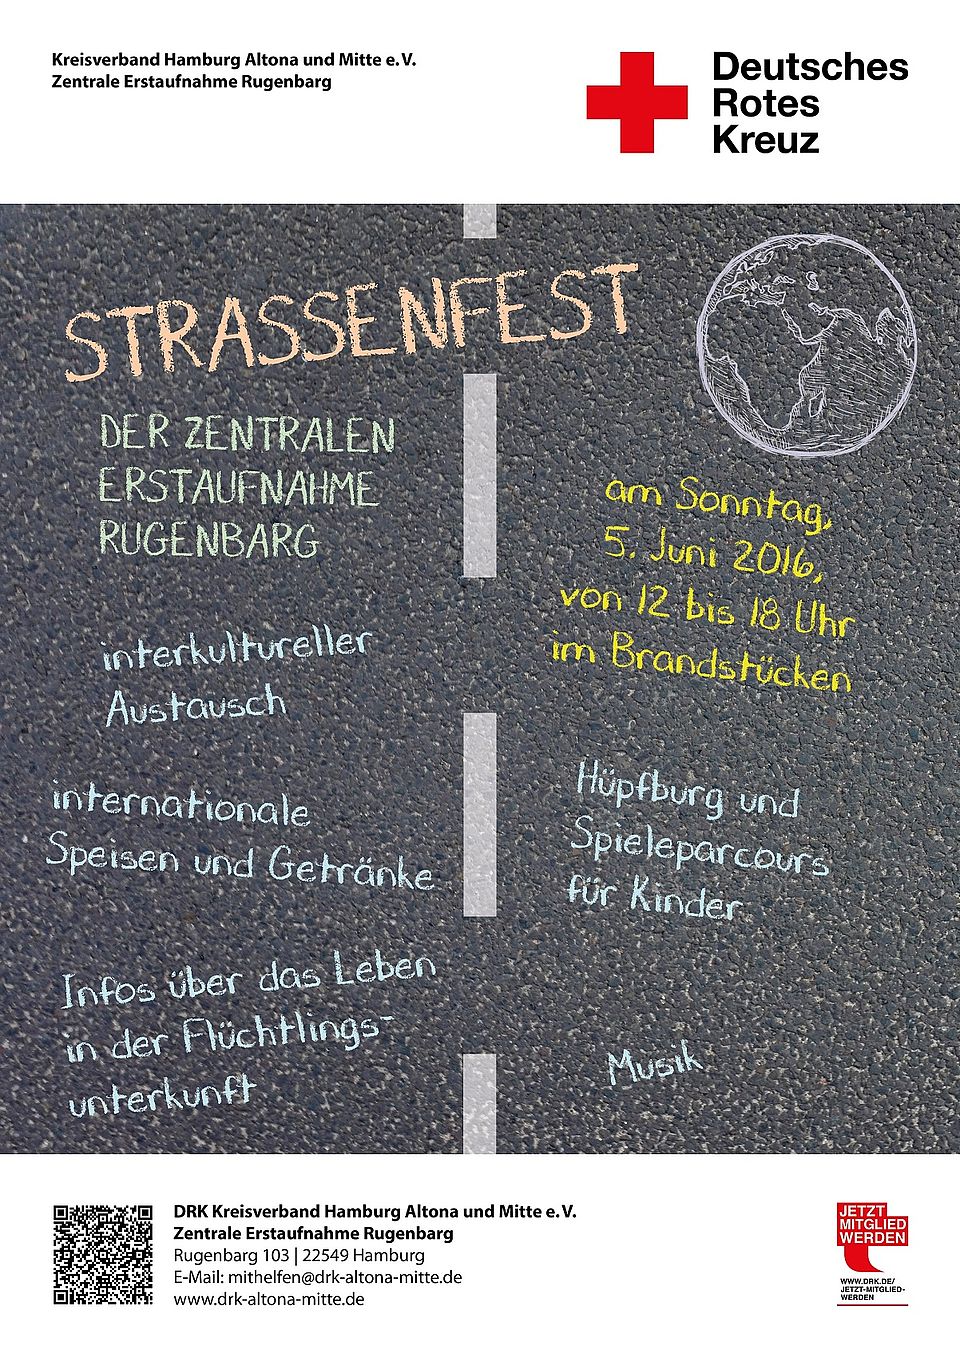 Kreisverband Hamburg Altona und Mitte e. V.
Zentrale Erstaufnahme Rugenbarg
Deutsches
Rotes
Kreuz
STRASSENFEST
DER ZENTRALEN
ERSTAUFNAHME
RUGENBARG
am Sonntag,
5. Juni 2016,
von 12 bis 18 Uhr
im Brandstücken
interkultureller
Austausch
internationale
Speisen und Getränke
Hüpfburg und
Spieleparcours
für Kinder
Infos über das Leben
in der Flüchtlings-
unterkunft
Musik
DRK Kreisverband Hamburg Altona und Mitte e. V.
Zentrale Erstaufnahme Rugenbarg
Rugenbarg 103 | 22549 Hamburg
E-Mail: mithelfen@drk-altona-mitte.de
www.drk-altona-mitte.de
JETZT
MITGLIED
WERDEN
WWW.DRK.DE/
JETZT-MITGLIED-
WERDEN